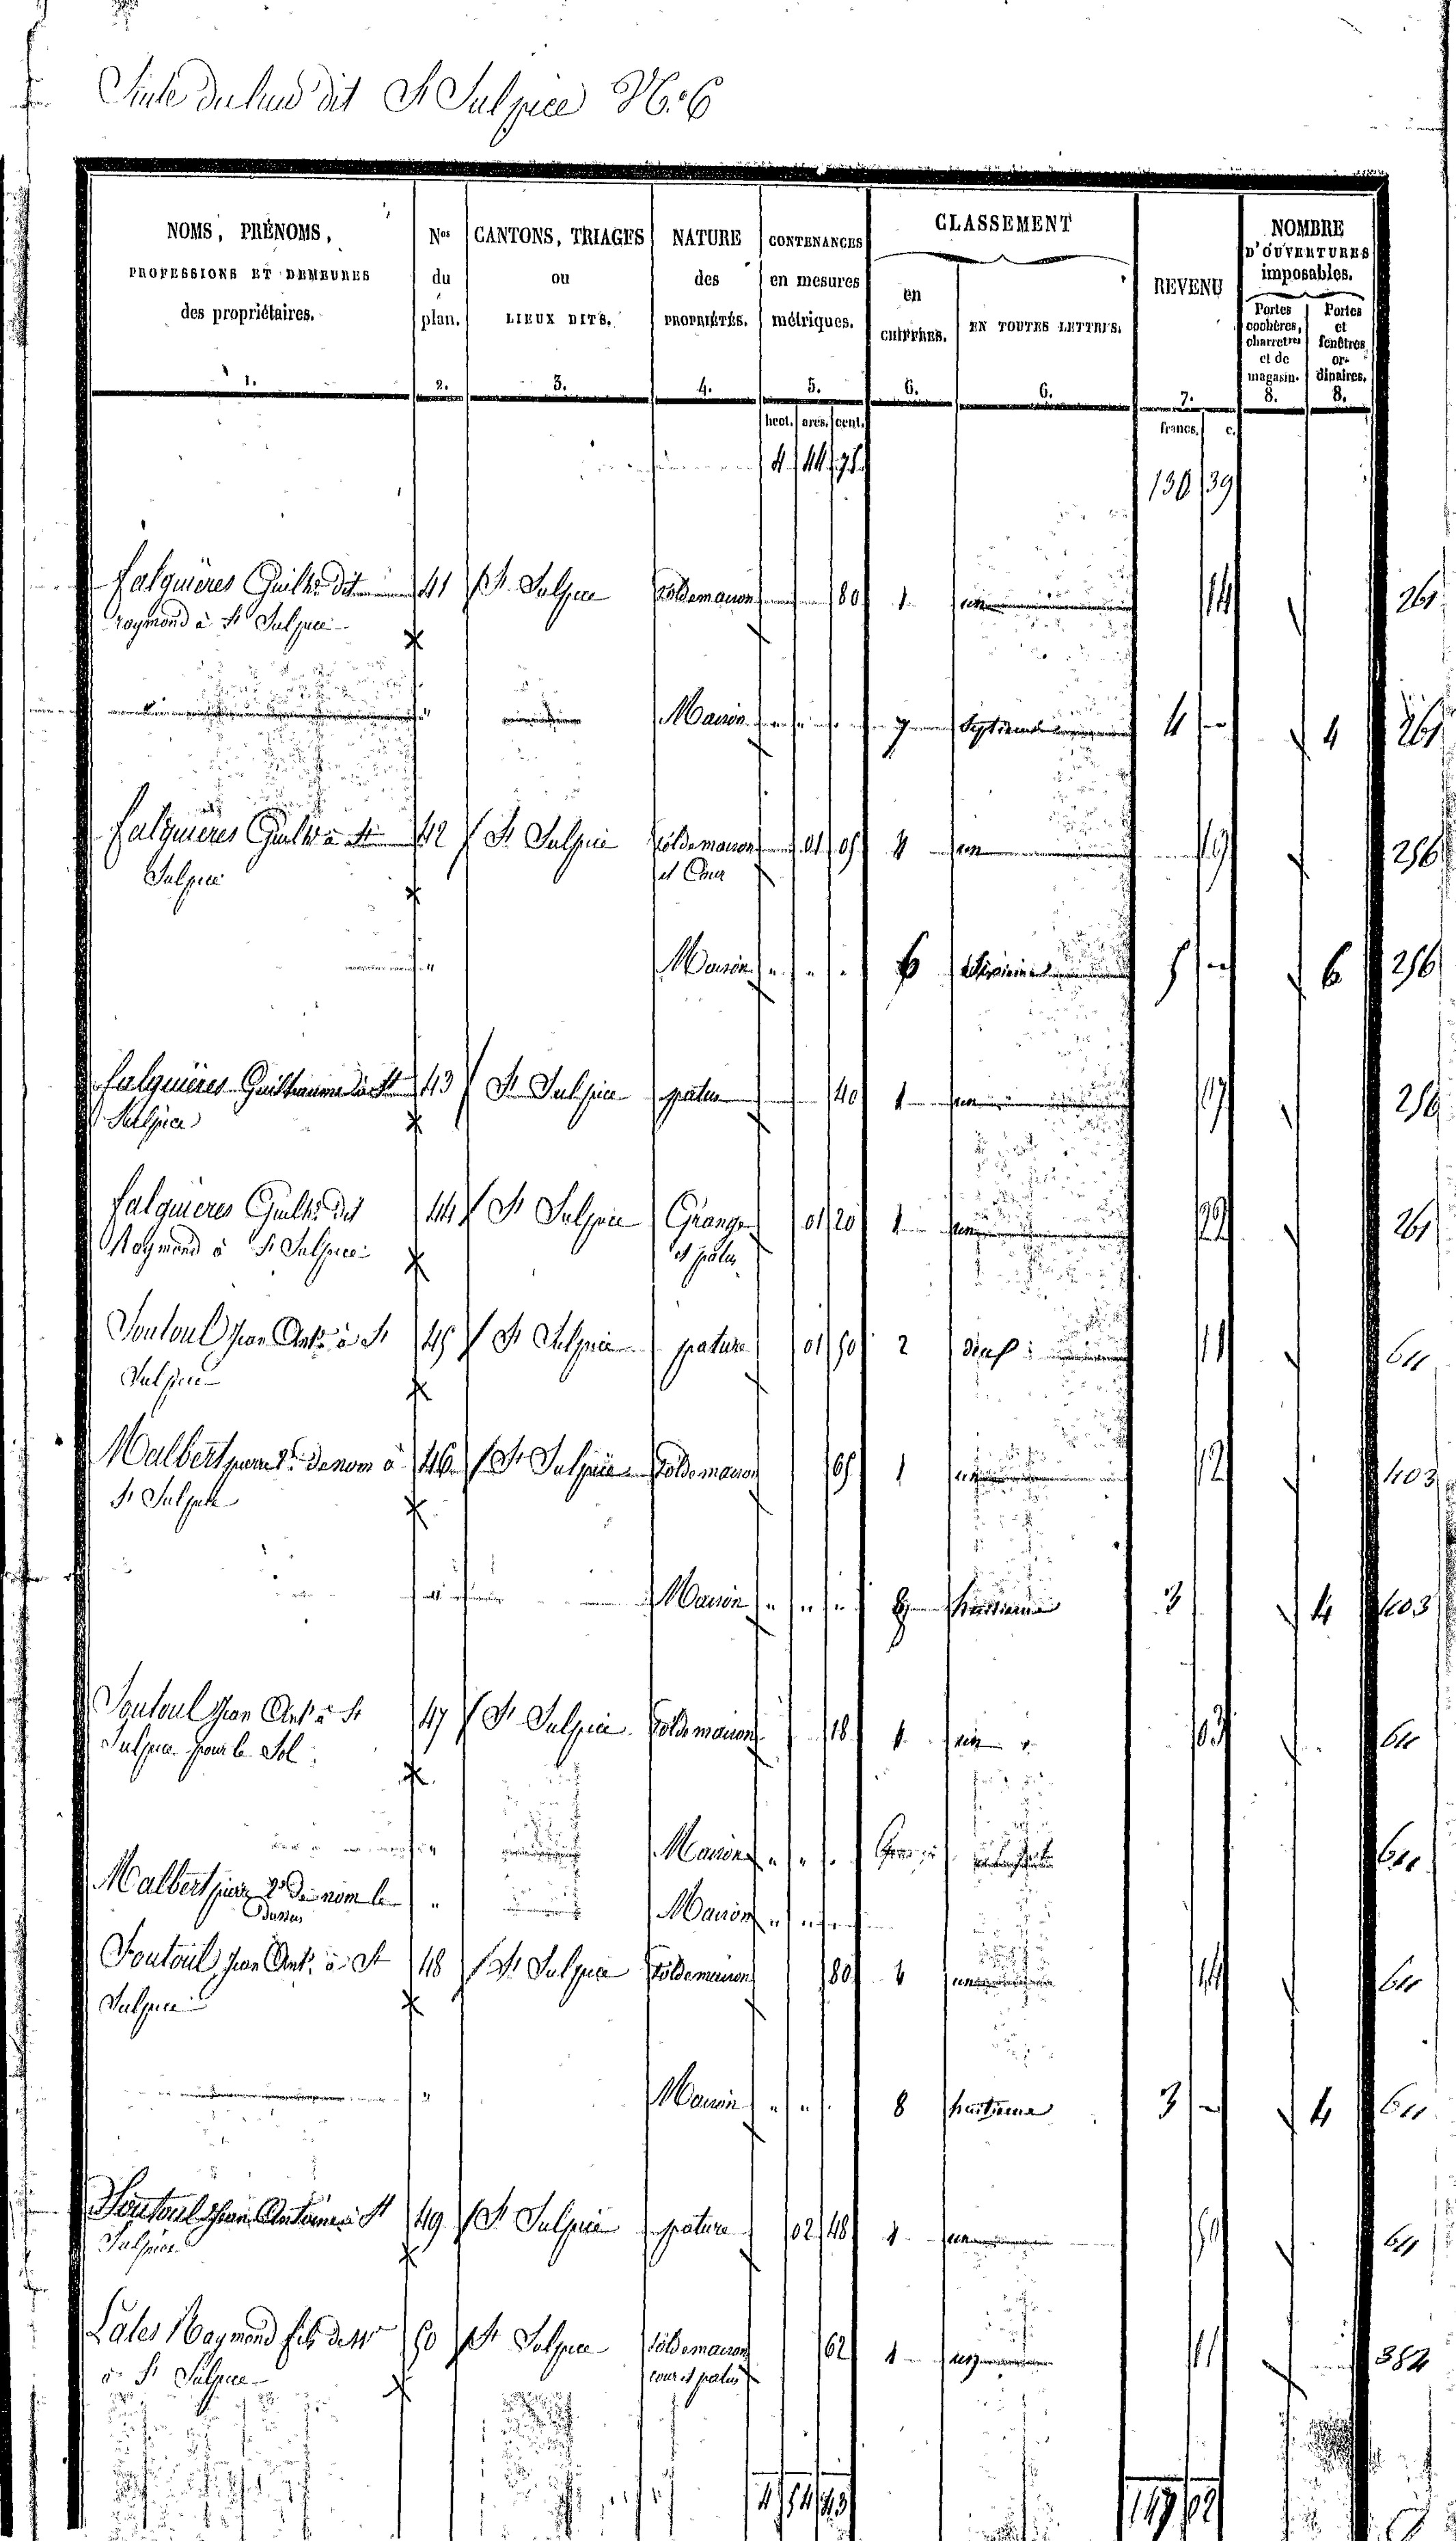 Suite du lieu dit St Sulpice N.° 6
NOMS, PRÉNOMS, PROFESSIONS ET DEMEURES des propriétaires. 1.
Nos du plan. 2.
CANTONS, TRIAGES ou LIEUX DITS. 3.
NATURE des PROPRIÉTÉS. 4.
CONTENANCES en mesures métriques. 5.
CLASSEMENT
en CHIFFRES. 6.
EN TOUTES LETTRES. 6.
REVENU 7.
NOMBRE D'OUVERTURES imposables.
Portes cochères, charretres et de magasin. 8.
Portes et fenêtres or- dinaires. 8.
hect. ares. cent. francs. c.
4 44 75 130 39
falguières Guilhe dit 41 St Sulpice sol de maison 80 1 un 14 261
raymond à St Sulpice
" Maison " " " 7 Septieme 4 4 261
falguières Guilhe à St 42 St Sulpice sol de maison 01 05 1 un 19 256
Sulpice et Cour
" Maison " " " 6 Sixieme 5 6 256
falguières Guilhaume à St 43 St Sulpice patus 40 1 un 07 256
Sulpice
falguieres Guilhe dit 44 St Sulpice Grange 01 20 1 un 22 261
Raymond à St Sulpice et patus
Soutoul Jean Ante à St 45 St Sulpice pature 01 50 2 deux 11 611
Sulpice
Malbert pierre 2e de nom à 46 St Sulpice sol de maison 65 1 un 12 403
St Sulpice
" Maison " " " 8 huitieme 3 4 403
Soutoul Jean Ante à St 47 St Sulpice sol de maison 18 1 un 03 611
Sulpice pour le Sol
" Maison " " " 611
Malbert pierre 2e de nom le " Maison " "
Dessus
Soutoul Jean Ante à St 48 St Sulpice sol de maison 80 1 un 14 611
Sulpice
" Maison " " 8 huitieme 3 4 611
Soutoul Jean Antoine à St 49 St Sulpice pature 02 48 1 un 50 611
Sulpice
Lales Raymond fils de 50 St Sulpice sol de maison 62 1 un 11 384
à St Sulpice cour et patus
4 54 43 147 02